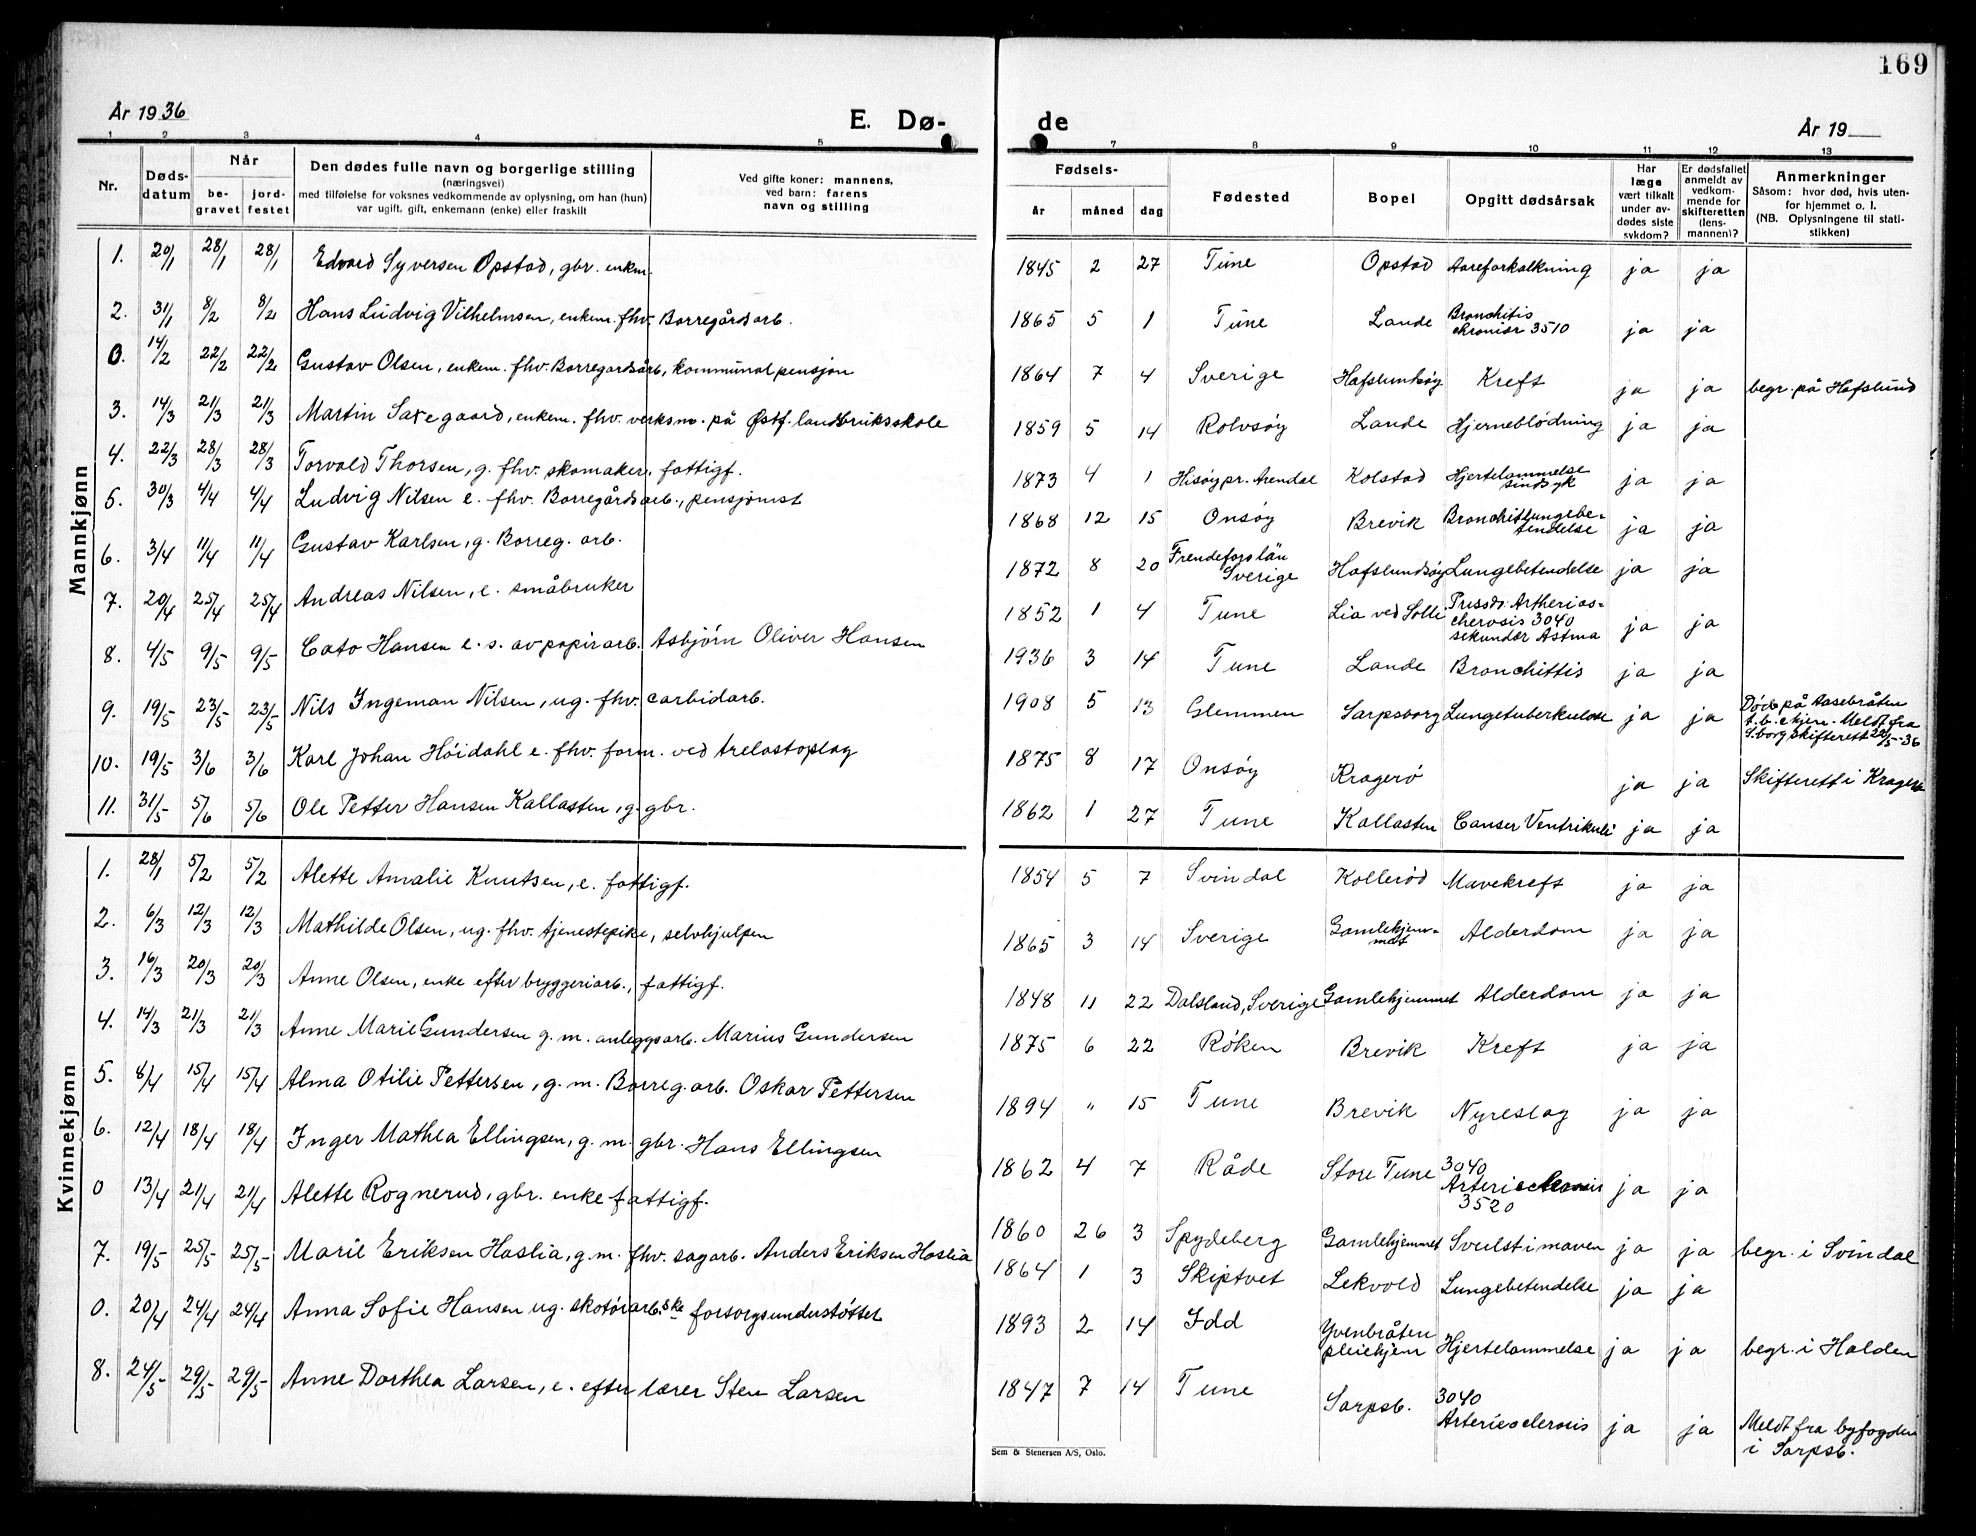 169
År 1936
E. Dø-
de
År 19
1 2 3 4 5
7 8 9 10 11 12 13
Nr.
Døds-
datum
Når
be-
gravet
jord-
festet
Den dødes fulle navn og borgerlige stilling
(næringsvei)
med tilføielse for voksnes vedkommende av oplysning, om han (hun)
var ugift, gift, enkemann (enke) eller fraskilt
Ved gifte koner: mannens,
ved barn: farens
navn og stilling
Fødsels-
år måned dag
Fødested
Bopel
Opgitt dødsårsak
Har
læge
vært tilkalt
under av-
dødes siste
sykdom?
Er dødsfallet
anmeldt av
vedkom-
mende for
skifteretten
(lens-
mannen)?
Anmerkninger
Såsom: hvor død, hvis uten-
for hjemmet o. l.
(NB. Oplysningene til stati-
stikken)
Mannkjønn
1. 20/1 28/1 28/1 Edvard Syversen Opstad, gbr. enkm. 1845 2 27 Tune Opstad Aareforkalkning ja ja
2. 31/1 8/2 8/2 Hans Ludvig Vilhelmsen, enkem. fhv. Borregårdsarb. 1865 5 1 Tune Lande Bronchitis
chronisr 3510 ja ja
0. 14/2 22/2 22/2 Gustav Olsen, enkem. fhv. Borregardsarb, kommunal pensjon 1864 7 4 Sverige Hafslundsøy Kreft ja ja begr. på Hafslund
3. 14/3 21/3 21/3 Martin Saxegaard, enkem. fhv. verksm. på Østf. landbruksskole 1859 5 14 Rolvsøy Lande Hjerneblödning ja ja
4. 22/3 28/3 28/3 Torvald Thorsen, g. fhv. skomaker, fattigf. 1873 4 1 Hisøy pr. Arendal Kolstad Hjertelammelse
sindsyk ja ja
5. 30/3 4/4 4/4 Ludvig Nilsen e. fhv. Borregårdsarb., pensjonist 1868 12 15 Onsøy Brevik Bronchitlungebe-
tendelse ja ja
6. 3/4 11/4 11/4 Gustav Karlsen, g. Borreg. arb. 1872 8 20 Frendefors län
Sverige Hafslundsøy Lungebetendelse ja ja
7. 20/4 25/4 25/4 Andreas Nilsen, e. småbruker 1852 1 4 Tune Lia ved Solli Artherios-
cherosis 3040
sekundær Astma ja ja
8. 4/5 9/5 9/5 Cato Hansen e. s. av papirarb. Asbjørn Oliver Hansen 1936 3 14 Tune Lande Bronchittis ja ja
9. 19/5 23/5 23/5 Nils Ingeman Nilsen, ug. fhv. carbidarb. 1908 5 13 Glemmen Sarpsborg Lungetuberkulose ja ja Død på Aasebråten
t.b.c hjem. Meldt fra
S.borg skifterett 22/5-36
10. 19/5 3/6 3/6 Karl Johan Höidahl e. fhv. form. ved trelastoplag 1875 8 17 Onsøy Kragerø ja ja Skifterett i Kragerø
11. 31/5 5/6 5/6 Ole Petter Hansen Kallasten, g. gbr. 1862 1 27 Tune Kallasten Canser Ventrikuli ja ja
Kvinnekjønn
1. 28/1 5/2 5/2 Alette Amalie Knutsen, e. fattigf. 1854 5 7 Svindal Kollerød Mavekreft ja ja
2. 6/3 12/3 12/3 Mathilde Olsen, ug. fhv. tjenestepike, selvhjulpen 1865 3 14 Sverige Gamlehjem-
met Alderdom ja ja
3. 16/3 20/3 20/3 Anne Olsen, enke efter bryggeriarb., fattigf. 1848 11 22 Dalsland, Sverige Gamlehjemmet Alderdom ja ja
4. 14/3 21/3 21/3 Anne Marie Gundersen g. m. anleggsarb. Marius Gundersen 1875 6 22 Røken Brevik Kreft ja ja
5. 8/4 15/4 15/4 Alma Otilie Pettersen, g. m. Borreg. arb. Oskar Pettersen 1894 " 15 Tune Brevik Nyreslag ja ja
6. 12/4 18/4 18/4 Inger Mathea Ellingsen, g. m. gbr. Hans Ellingsen 1862 4 7 Råde Store Tune 3040
Arteriosclerosis
3520 ja ja
0 13/4 21/4 21/4 Alette Rognerud, gbr. enke fattigf. 1860 26 3 Spydeberg Gamlehjemmet Svulst i maven ja ja begr. i Svindal
7. 19/5 25/5 25/5 Marie Eriksen Haslia, g. m. fhv. sagarb. Anders Eriksen Haslia 1864 1 3 Skiptvet Lekvold Lungebetendelse ja ja
0. 20/4 24/4 24/4 Anna Sofie Hansen ug. skotøiarb.ske forsorgsunderstøttet 1893 2 14 Idd Yvenbråten
pleiehjem Hjertelammelse ja ja begr. i Halden
8. 24/5 29/5 29/5 Anne Dorthea Larsen, e. efter lærer Sten Larsen 1847 7 14 Tune Sarpsb. 3040
Arteriosclerosis ja ja Meldt fra byfogden
i Sarpsb.
Sem & Stenersen A/S, Oslo.